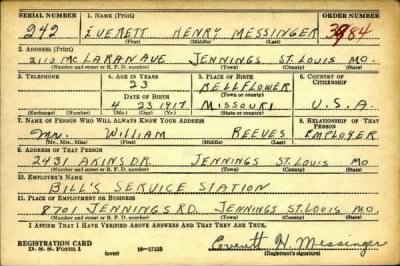 SERIAL NUMBER 1. NAME (Print) ORDER NUMBER
242 EVERETT HENRY MESSINGER 84
(First) (Middle) (Last)
2. ADDRESS (Print)
2110 McLARAN AVE JENNINGS ST. LOUIS MO.
(Number and street or R. F. D. number) (Town) (County) (State)
3. TELEPHONE 4. AGE IN YEARS 5. PLACE OF BIRTH 6. COUNTRY OF CITIZENSHIP
23 BELLFLOWER
DATE OF BIRTH (Town or county)
4 23 1917 MISSOURI U.S.A.
(Exchange) (Number) (Mo.) (Day) (Yr.) (State or country)
7. NAME OF PERSON WHO WILL ALWAYS KNOW YOUR ADDRESS 8. RELATIONSHIP OF THAT PERSON
Mr. WILLIAM REEVES EMPLOYER
(Mr., Mrs., Miss) (First) (Middle) (Last)
9. ADDRESS OF THAT PERSON
2431 AKINS DR. JENNINGS ST. LOUIS MO
(Number and street or R. F. D. number) (Town) (County) (State)
10. EMPLOYER'S NAME
BILL'S SERVICE STATION
11. PLACE OF EMPLOYMENT OR BUSINESS
8701 JENNINGS RD. JENNINGS ST. LOUIS MO.
(Number and street or R. F. D. number) (Town) (County) (State)
I AFFIRM THAT I HAVE VERIFIED ABOVE ANSWERS AND THAT THEY ARE TRUE.
REGISTRATION CARD
D. S. S. Form 1 (over) 16-17105 Everett H. Messinger
(Registrant's signature)